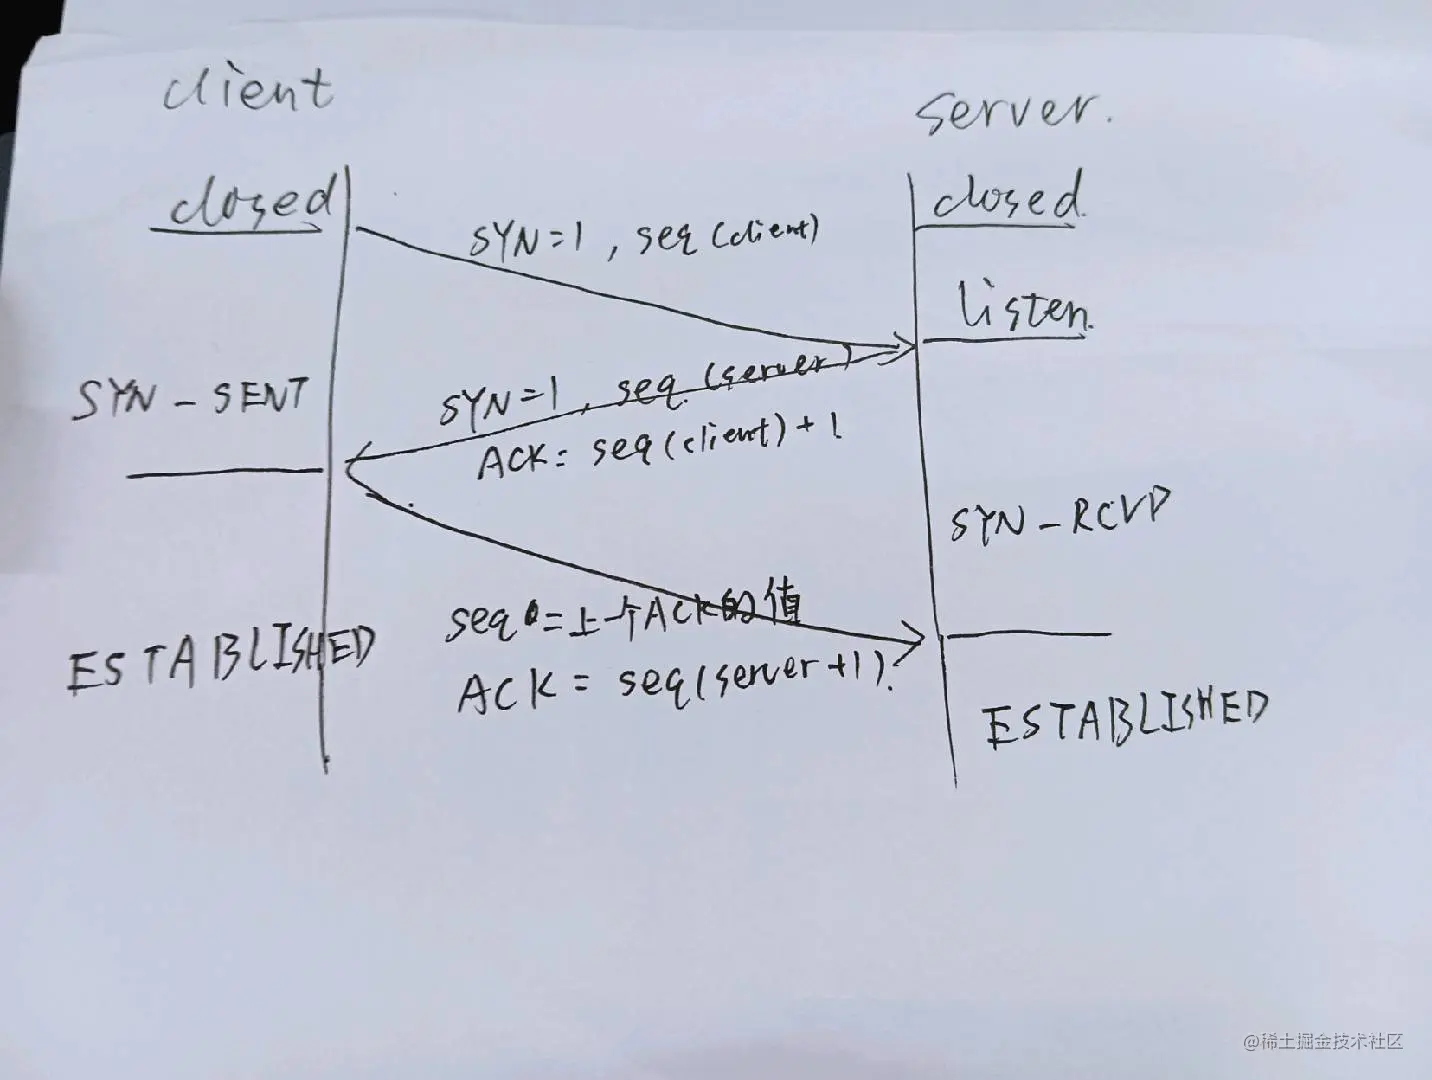 client
server.
closed
closed.
SYN=1, seq(client)
listen.
SYN-SENT
SYN=1, seq(server)
ACK= seq(client)+1
SYN-RCVD
seq=上一个ACK的值
ESTABLISHED
ACK = seq(server+1).
ESTABLISHED
@稀土掘金技术社区